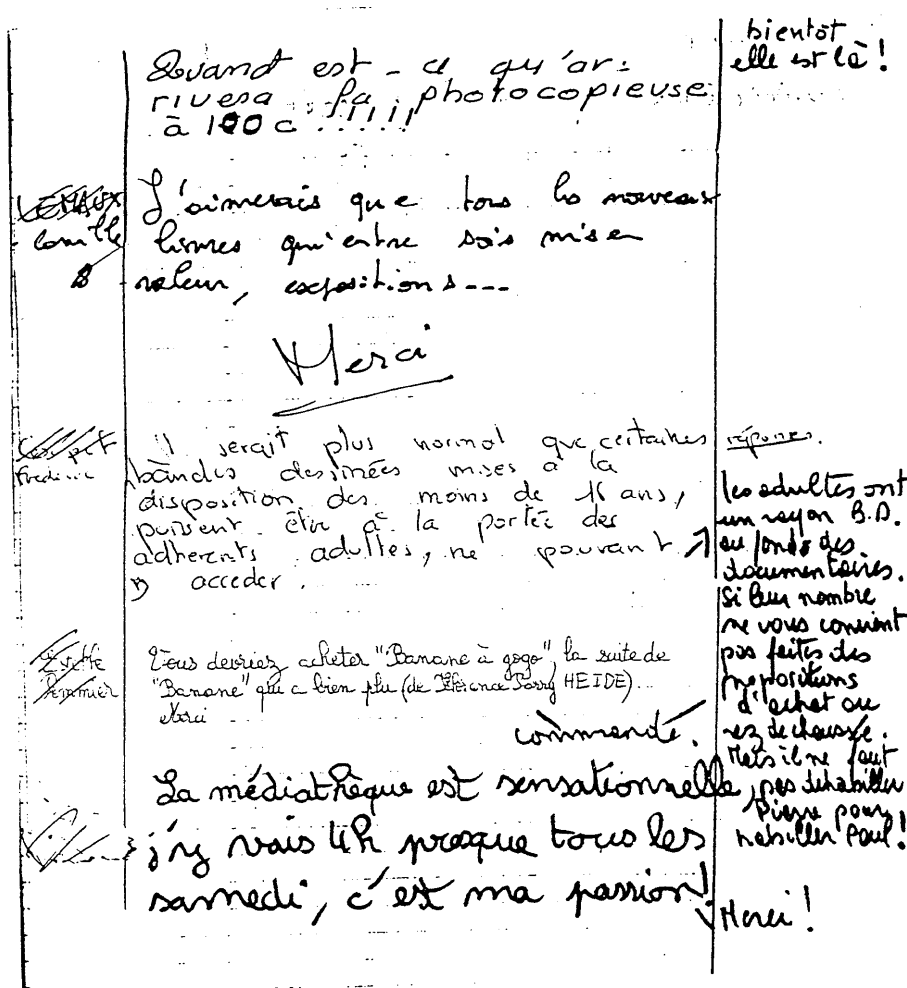 Quand est-ce qu'ar-
rivera la photocopieuse
à 100c !!!!!
bientôt
elle est là !
LEHAUX
Camille
J'aimerais que tous les nouveaux
livres qui entre sois mise
valeur, expositions---
Merci
Frédéric
il serait plus normal que certaines
bandes dessinées mises à la
disposition des moins de 16 ans,
puissent être à la portée des
adherents adultes, ne pouvant
y acceder.
réponses.
les adultes ont
un rayon B.D.
au fonds des
documentaires.
Si leur nombre
ne vous convient
pas faites des
propositions
d'achat au
rez de chaussée.
Mais il ne faut
pas déhabiller
Pierre pour
habiller Paul !
Yvette
Vous devriez acheter "Banane à gogo", la suite de
"Banane" qui a bien plu (de Florence Parry HEIDE)...
Merci
commandé.
La médiathèque est sensationnelle,
j'y vais 4h presque tous les
samedi, c'est ma passion!
Merci !